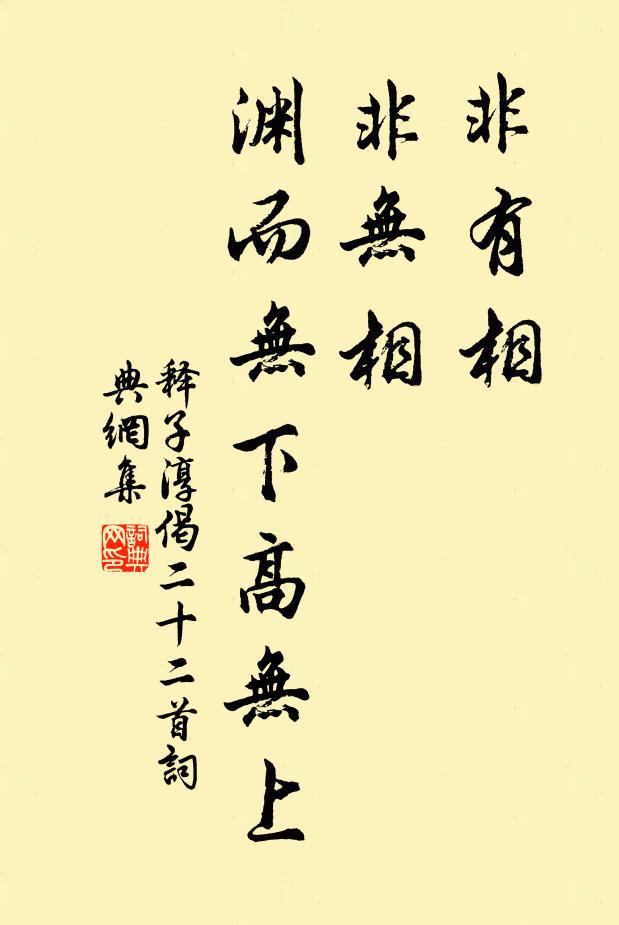 非有相
非無相
渊而無下高無上
释子淳偈二十二首詞
典網集
詞典
网印